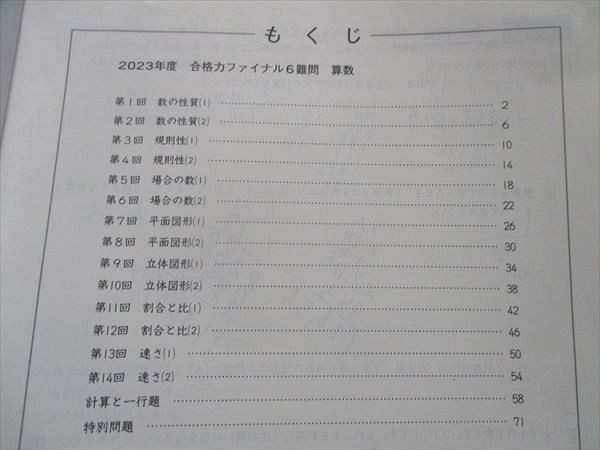 もくじ
2023年度 合格力ファイナル6難問 算数
第1回 数の性質(1) 2
第2回 数の性質(2) 6
第3回 規則性(1) 10
第4回 規則性(2) 14
第5回 場合の数(1) 18
第6回 場合の数(2) 22
第7回 平面図形(1) 26
第8回 平面図形(2) 30
第9回 立体図形(1) 34
第10回 立体図形(2) 38
第11回 割合と比(1) 42
第12回 割合と比(2) 46
第13回 速さ(1) 50
第14回 速さ(2) 54
計算と一行題 58
特別問題 71